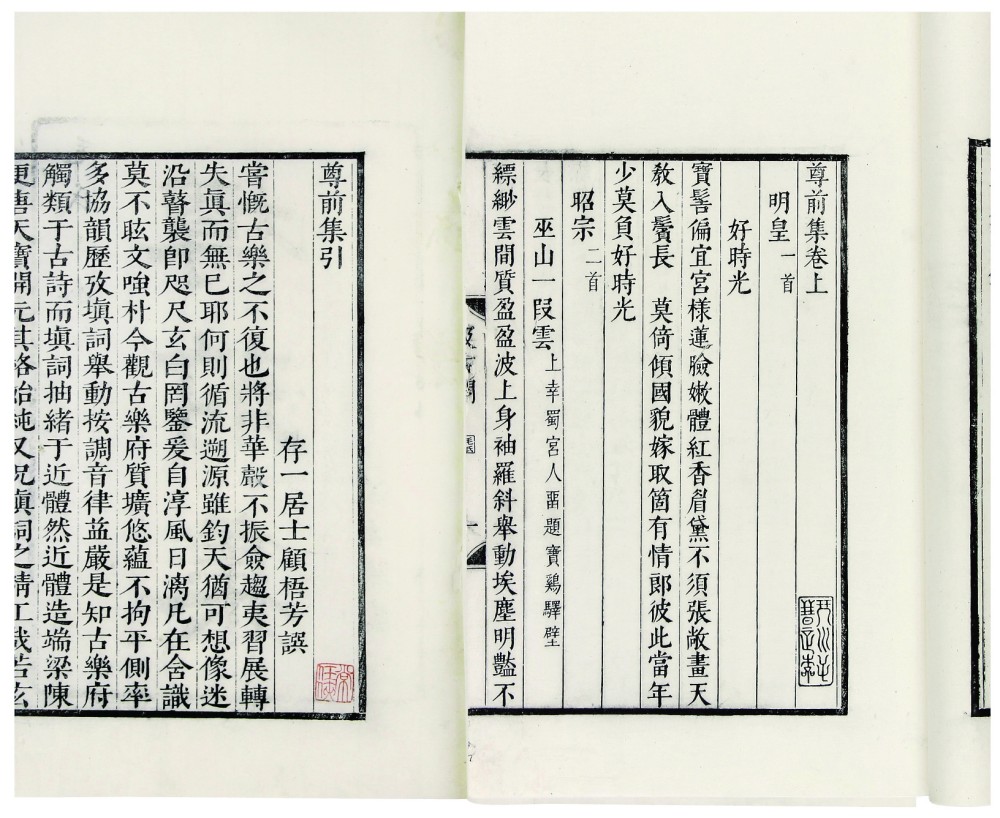 尊前集卷上
明皇 一首
好時光
寶髻偏宜宮樣蓮臉嫩體紅香眉黛不須張敞畫天
教入鬢長 莫倚傾國貌嫁取箇有情郎彼此當年
少莫負好時光
昭宗 二首
巫山一段雲 上幸蜀宮人畱題寶鷄驛壁
縹緲雲間質盈盈波上身袖羅斜舉動埃塵明豔不
尊前集引
存一居士顧梧芳譔
嘗慨古樂之不復也將非華殼不振僉趨夷習展轉
失眞而無已耶何則循流遡源雖鈞天猶可想像迷
沿瞽襲卽咫尺玄白罔鑒爰自淳風日漓凡在含識
莫不眩文嗤朴今觀古樂府質壙悠蘊不拘平側率
多協韻歷攷塡詞舉動按調音律益嚴是知古樂府
觸類于古詩而塡詞抽緒于近體然近體造端梁陳
更唐天寶開元其格始純又況塡詞之精工哉若玄